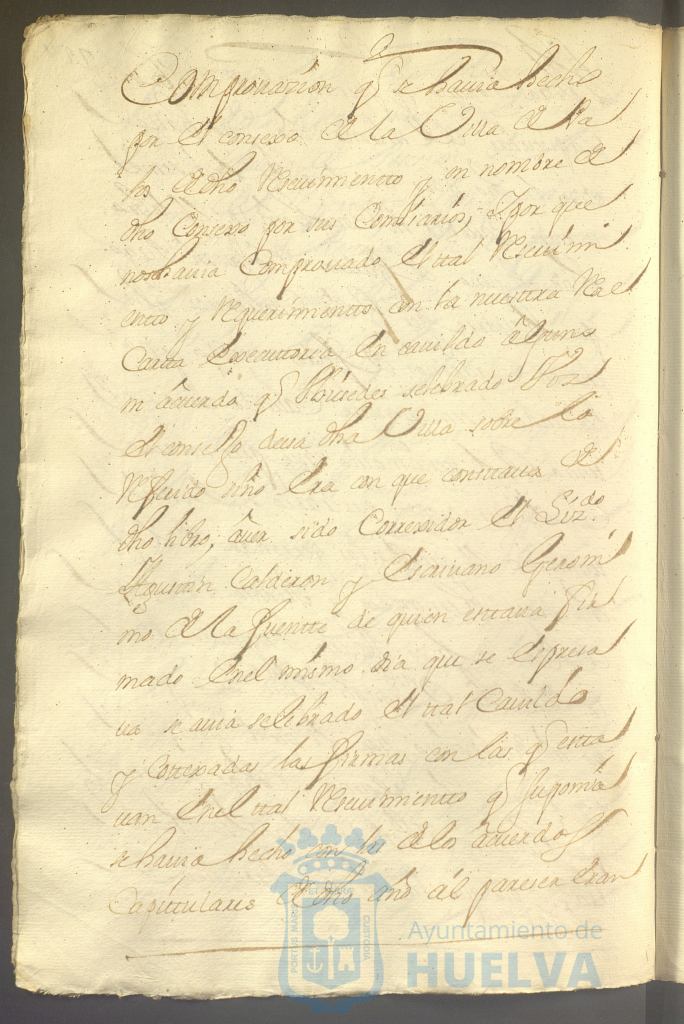 Comprouazion q̃ se hauia hecho
por el consexo de la Villa de Pa
los de dho Rescuimientto y en nombre de
dho Consexo por sus Comisarios, I por que
nose hauia Comprouado el tal Resciui mi
entto y Requerimientto con la nuestra Rae
Cartta executtoria En cauildo
m acuerdo q̃ selebrado Por
el consejo desa dha Villa sobre lo
Referido sino era con que consttaua de
dho libro, auer sido Correxidor el Lizdo
Agustin Calderon y escriuano Geroni
mo de la fuentte de quien esttaua fir
mado Enel mismo dia que se espresa
ua se auia selebrado el ttal Cauildo
y Cottexadas las firmas con las q̃ estta
uan Enel ttal Resciuimientto q̃ suponia
se hauia hecho con las de los acuerdos
Capitulares de dho año al pareser Eran
Ayuntamiento de
HUELVA